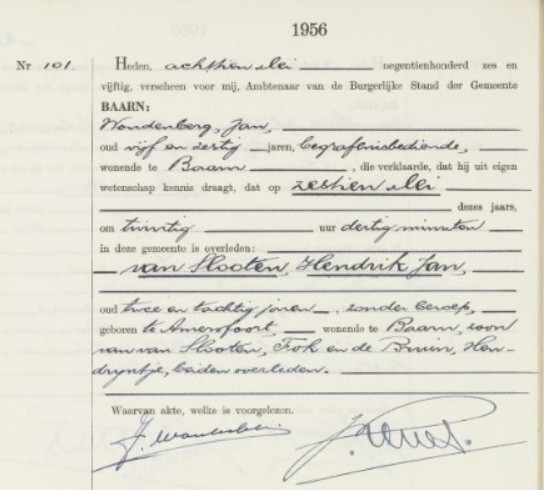 1956
Nr 101.
Heden, achttien Mei negentienhonderd zes en
vijftig, verscheen voor mij, Ambtenaar van de Burgerlijke Stand der Gemeente
BAARN:
Woudenberg, Jan,
oud vijf en dertig jaren, begrafenisbediende,
wonende te Baarn, die verklaarde, dat hij uit eigen
wetenschap kennis draagt, dat op zestien Mei
dezes jaars,
om twintig uur dertig minuten
in deze gemeente is overleden:
van Slooten, Hendrik Jan,
oud twee en tachtig jaren, zonder beroep,
geboren te Amersfoort, wonende te Baarn, zoon
van van Slooten, Fok en de Bruin, Hen-
drijntje, beiden overleden.
Waarvan akte, welke is voorgelezen.